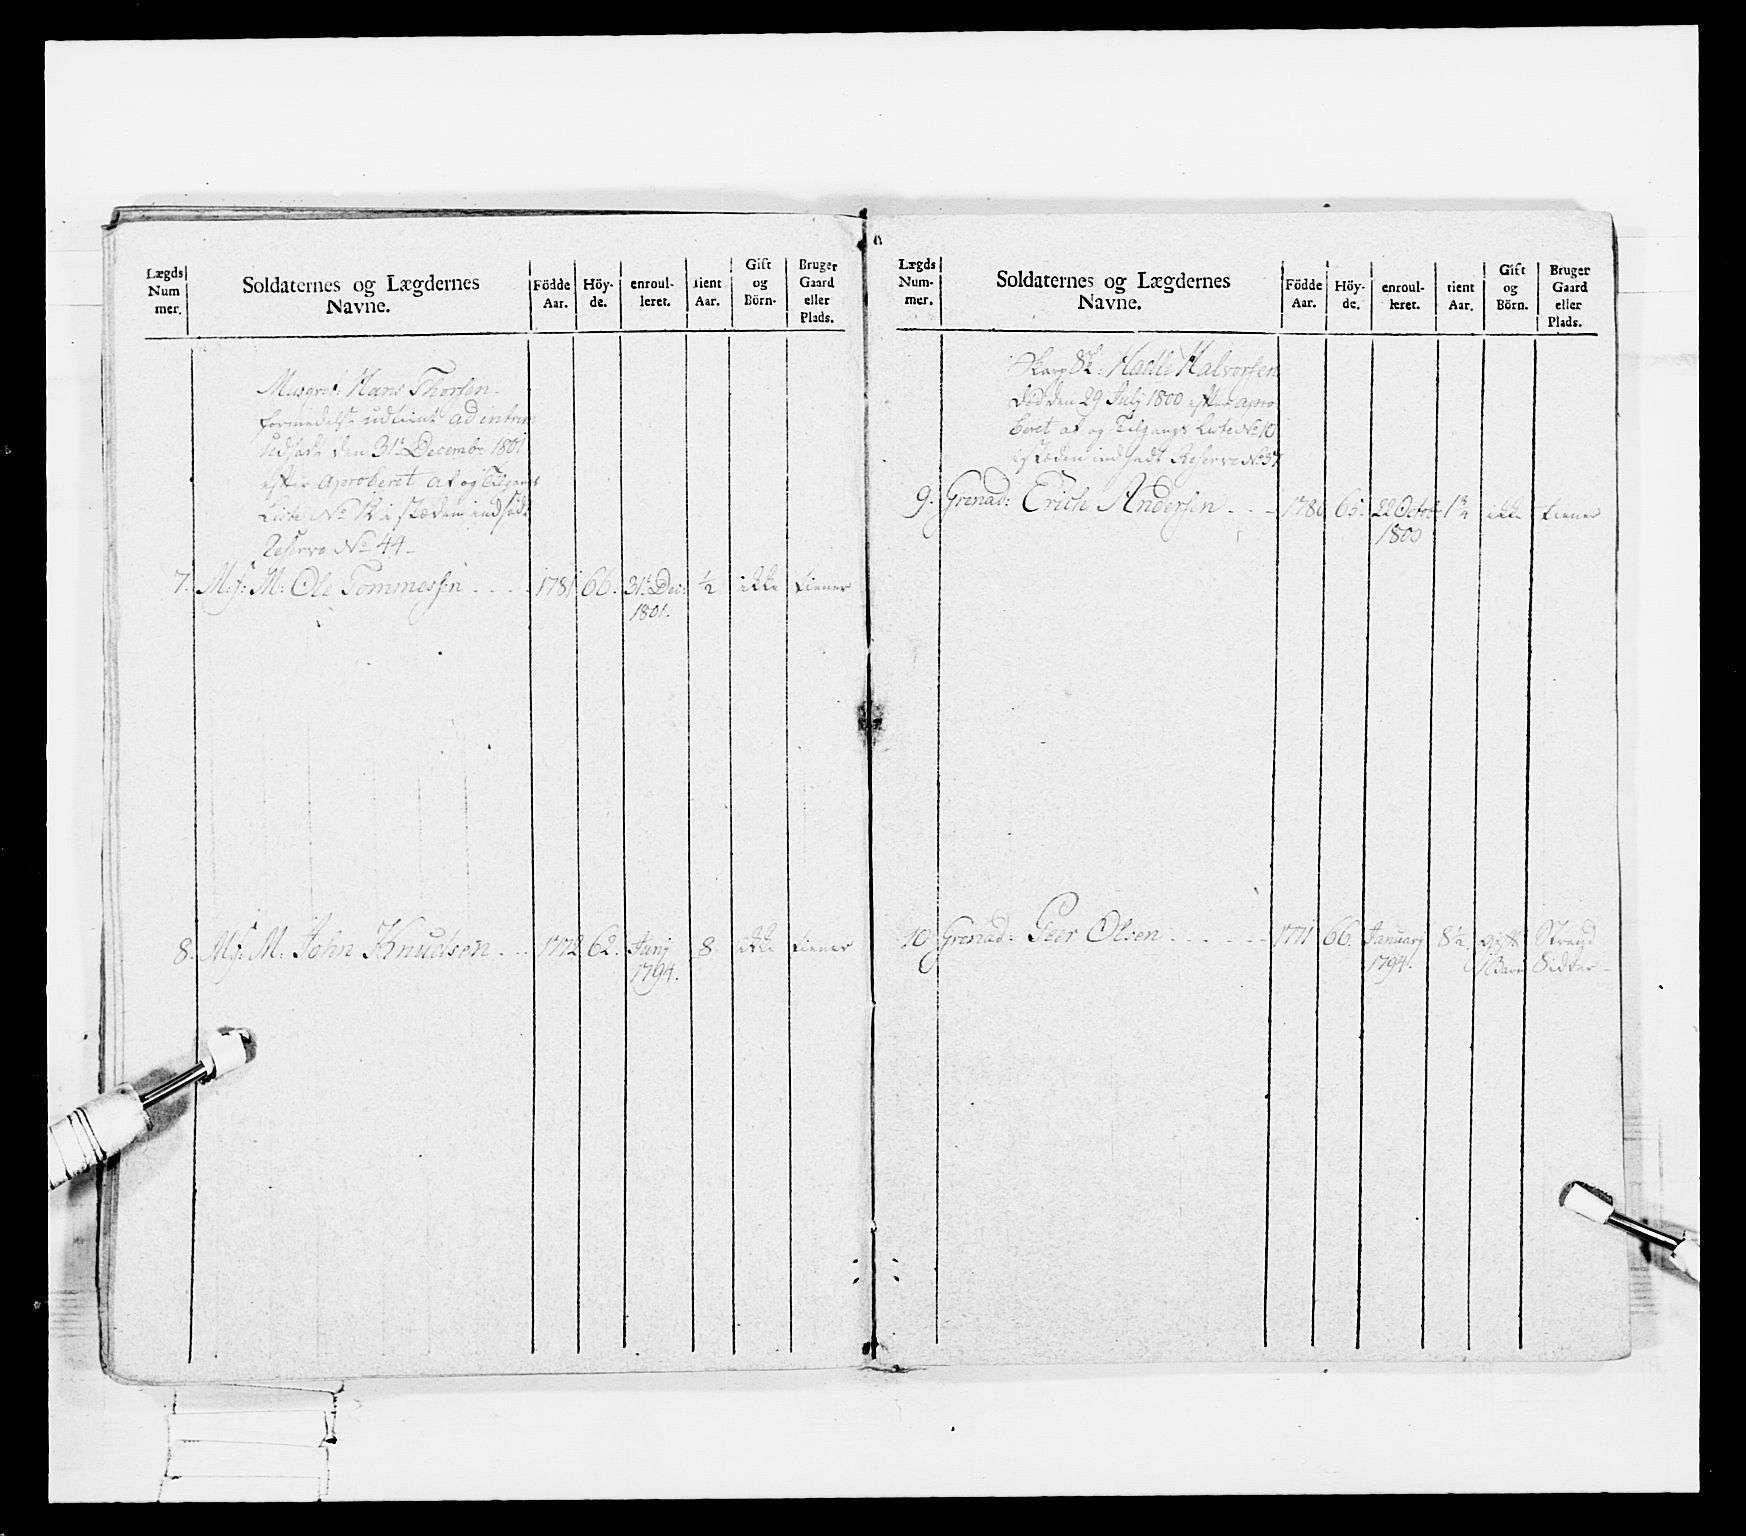 Lægds Num mer.
Soldaternes og Lægdernes Navne.
Födde Aar.
Höy- de.
enroul- leret.
tient Aar.
Gift og Börn.
Bruger Gaard eller Plads.
Musqret: Hans Thorsen
formedelst udtient ad intrim
udsadt den 31t Decembr 1801
efter aproberet af og Tilgangs
Liste No 12 i stæden indsadt
Reserve No 44
7. M:f: M: Ole Tommesen 1781 66. 31t Dec: 1/2 ikke tiener
1801.
8. M:f: M: John Knudsen 1772 62. Junj 8. ikke tiener
1794.
Lægds Num- mer.
Soldaternes og Lægdernes Navne.
Födde Aar.
Höy- de.
enroul- leret.
tient Aar.
Gift og Börn.
Bruger Gaard eller Plads.
Skarp Halvorsen
död den 29 July 1800 efter apro
beret af og Tilgangs Liste No 10
i stæden indsadt Reserve No 37
9. Grenad: Erich Andersen 65. 22 Octob: 1 3/4 ikke tiener
1800
10 Grenad: Peer Olsen 1771 66. Januarj 8 1/2 gift Strand
1794. 1 Barn Sidder